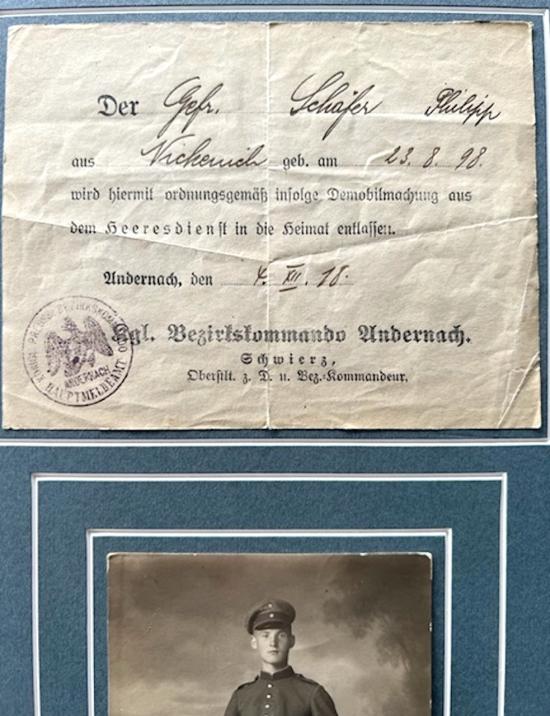 Der Gefr. Schäfer Philipp
aus Nickenich geb. am 23. 8. 98.
wird hiermit ordnungsgemäß infolge Demobilmachung aus
dem Heeresdienst in die Heimat entlassen.
Andernach, den 4. XII. 18.
Kgl. Bezirkskommando Andernach.
Schwierz,
Oberstlt. z. D. u. Bez.-Kommandeur.
KÖNIGL. PREUSS. BEZIRKSKOMMANDO
ANDERNACH
HAUPTMELDEAMT